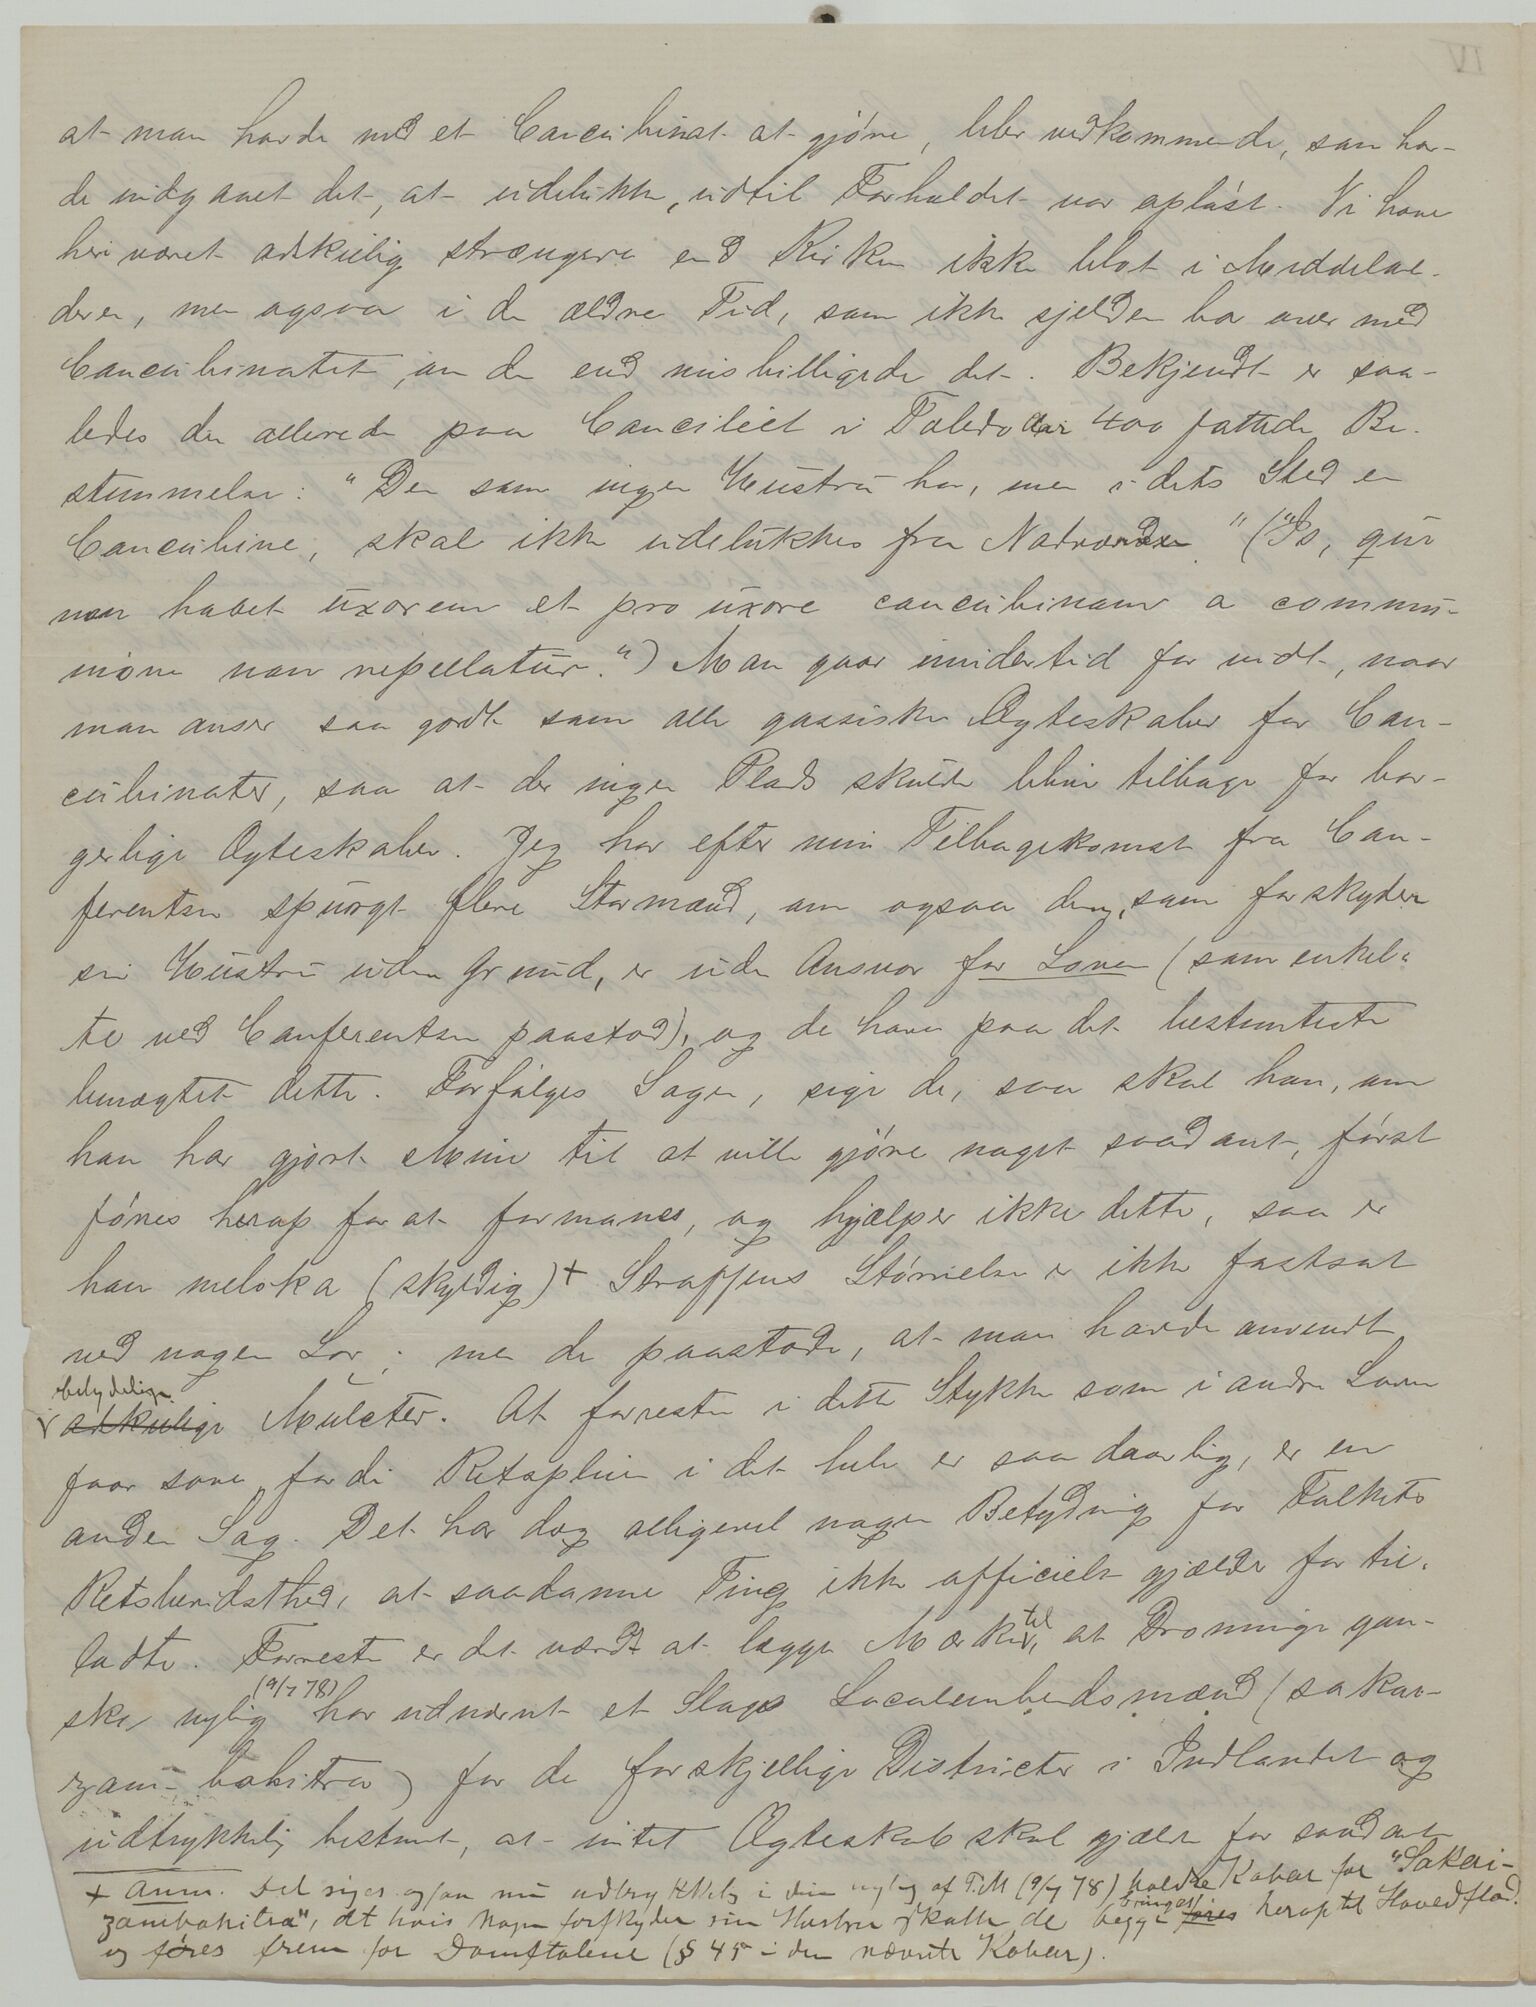 IV
at man havde med et Concubinat at gjøre, blev vedkommende, som hav-
de indgaaet det, at udelukke, indtil Forholdet var opløst. Vi have
heri været adskillig strængere end Kirken ikke blot i Middelal-
deren, men ogsaa i den ældre Tid, som ikke sjelden bar over med
Concubinatet, om de end misbilligede det. Bekjendt er saa-
ledes den allerede paa Conciliet i Toledo Aar 400 fattede Be-
stemmelse: "Den som ingen Hustru har, men i dets Sted en
Concubine, skal ikke udelukkes fra Nadverden." ("Is, qui
non habet uxorem et pro uxore concubinam a commu-
nione non repellatur.") Man gaar imidlertid for vidt, naar
man anser saa godt som alle gassiske Ægteskaber for Con-
cubinater, saa at der ingen Plads skulde blive tilbage for bor-
gerlige Ægteskaber. Jeg har efter min Tilbagekomst fra Con-
ferentsen spurgt flere Stormænd, om ogsaa den, som forskyder
sin Hustru uden Grund, er uden Ansvar for Loven (som enkel-
te ved Conferentsen paastod), og de have paa det bestemteste
benægtet dette. Forfølges Sagen, sige de, saa skal han, om
han har gjort Mine til at ville gjøre noget saadant, først
føres herop for at formanes, og hjælper ikke dette, saa er
han meloka (skyldig) + Straffens Størrelse er ikke fastsat
ved nogen Lov; men de paastode, at man havde anvendt
betydelige
adskillige Mulcter. At forresten i dette Stykke som i andre Loven
faar sove, fordi Retspleien i det hele er saa daarlig, er en
anden Sag. Det har dog alligevel nogen Betydning for Folkets
Retsbevidsthed, at saadanne Ting ikke officielt gjælder for til-
ladte. Forresten er det værdt at lægge Mærke til, at Dronningen gan-
ske nylig (9/7 78) har udnævnt et Slags Localembedsmænd (sakai-
zam-bohitra) for de forskjellige Districter i Indlandet og
udtrykkelig bestemt, at intet Ægteskab skal gjælde for saadant
+ Anm. Det siges ogsaa nu udtrykkelig i den nylig af T.M. (9/7 78) holdte Kabar for "Sakai-
zambohitra", at hvis Nogen forskyder sin Hustru skulle de begge føres bringes herop til Hovedstad.
og føres frem for Domstolene (§ 45 i den nævnte Kabar).